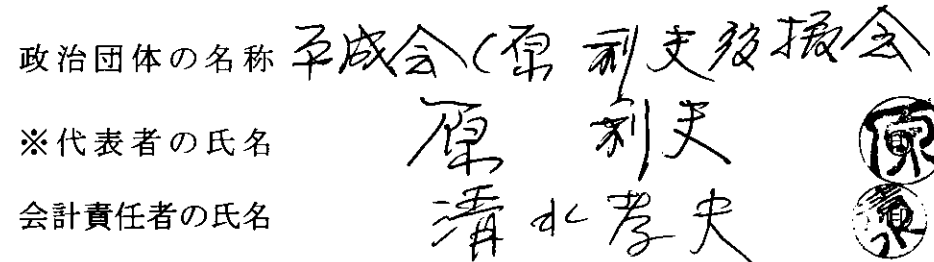 政治団体の名称 平成会(原 利夫後援会
※代表者の氏名 原 利夫 原
会計責任者の氏名 清水孝夫